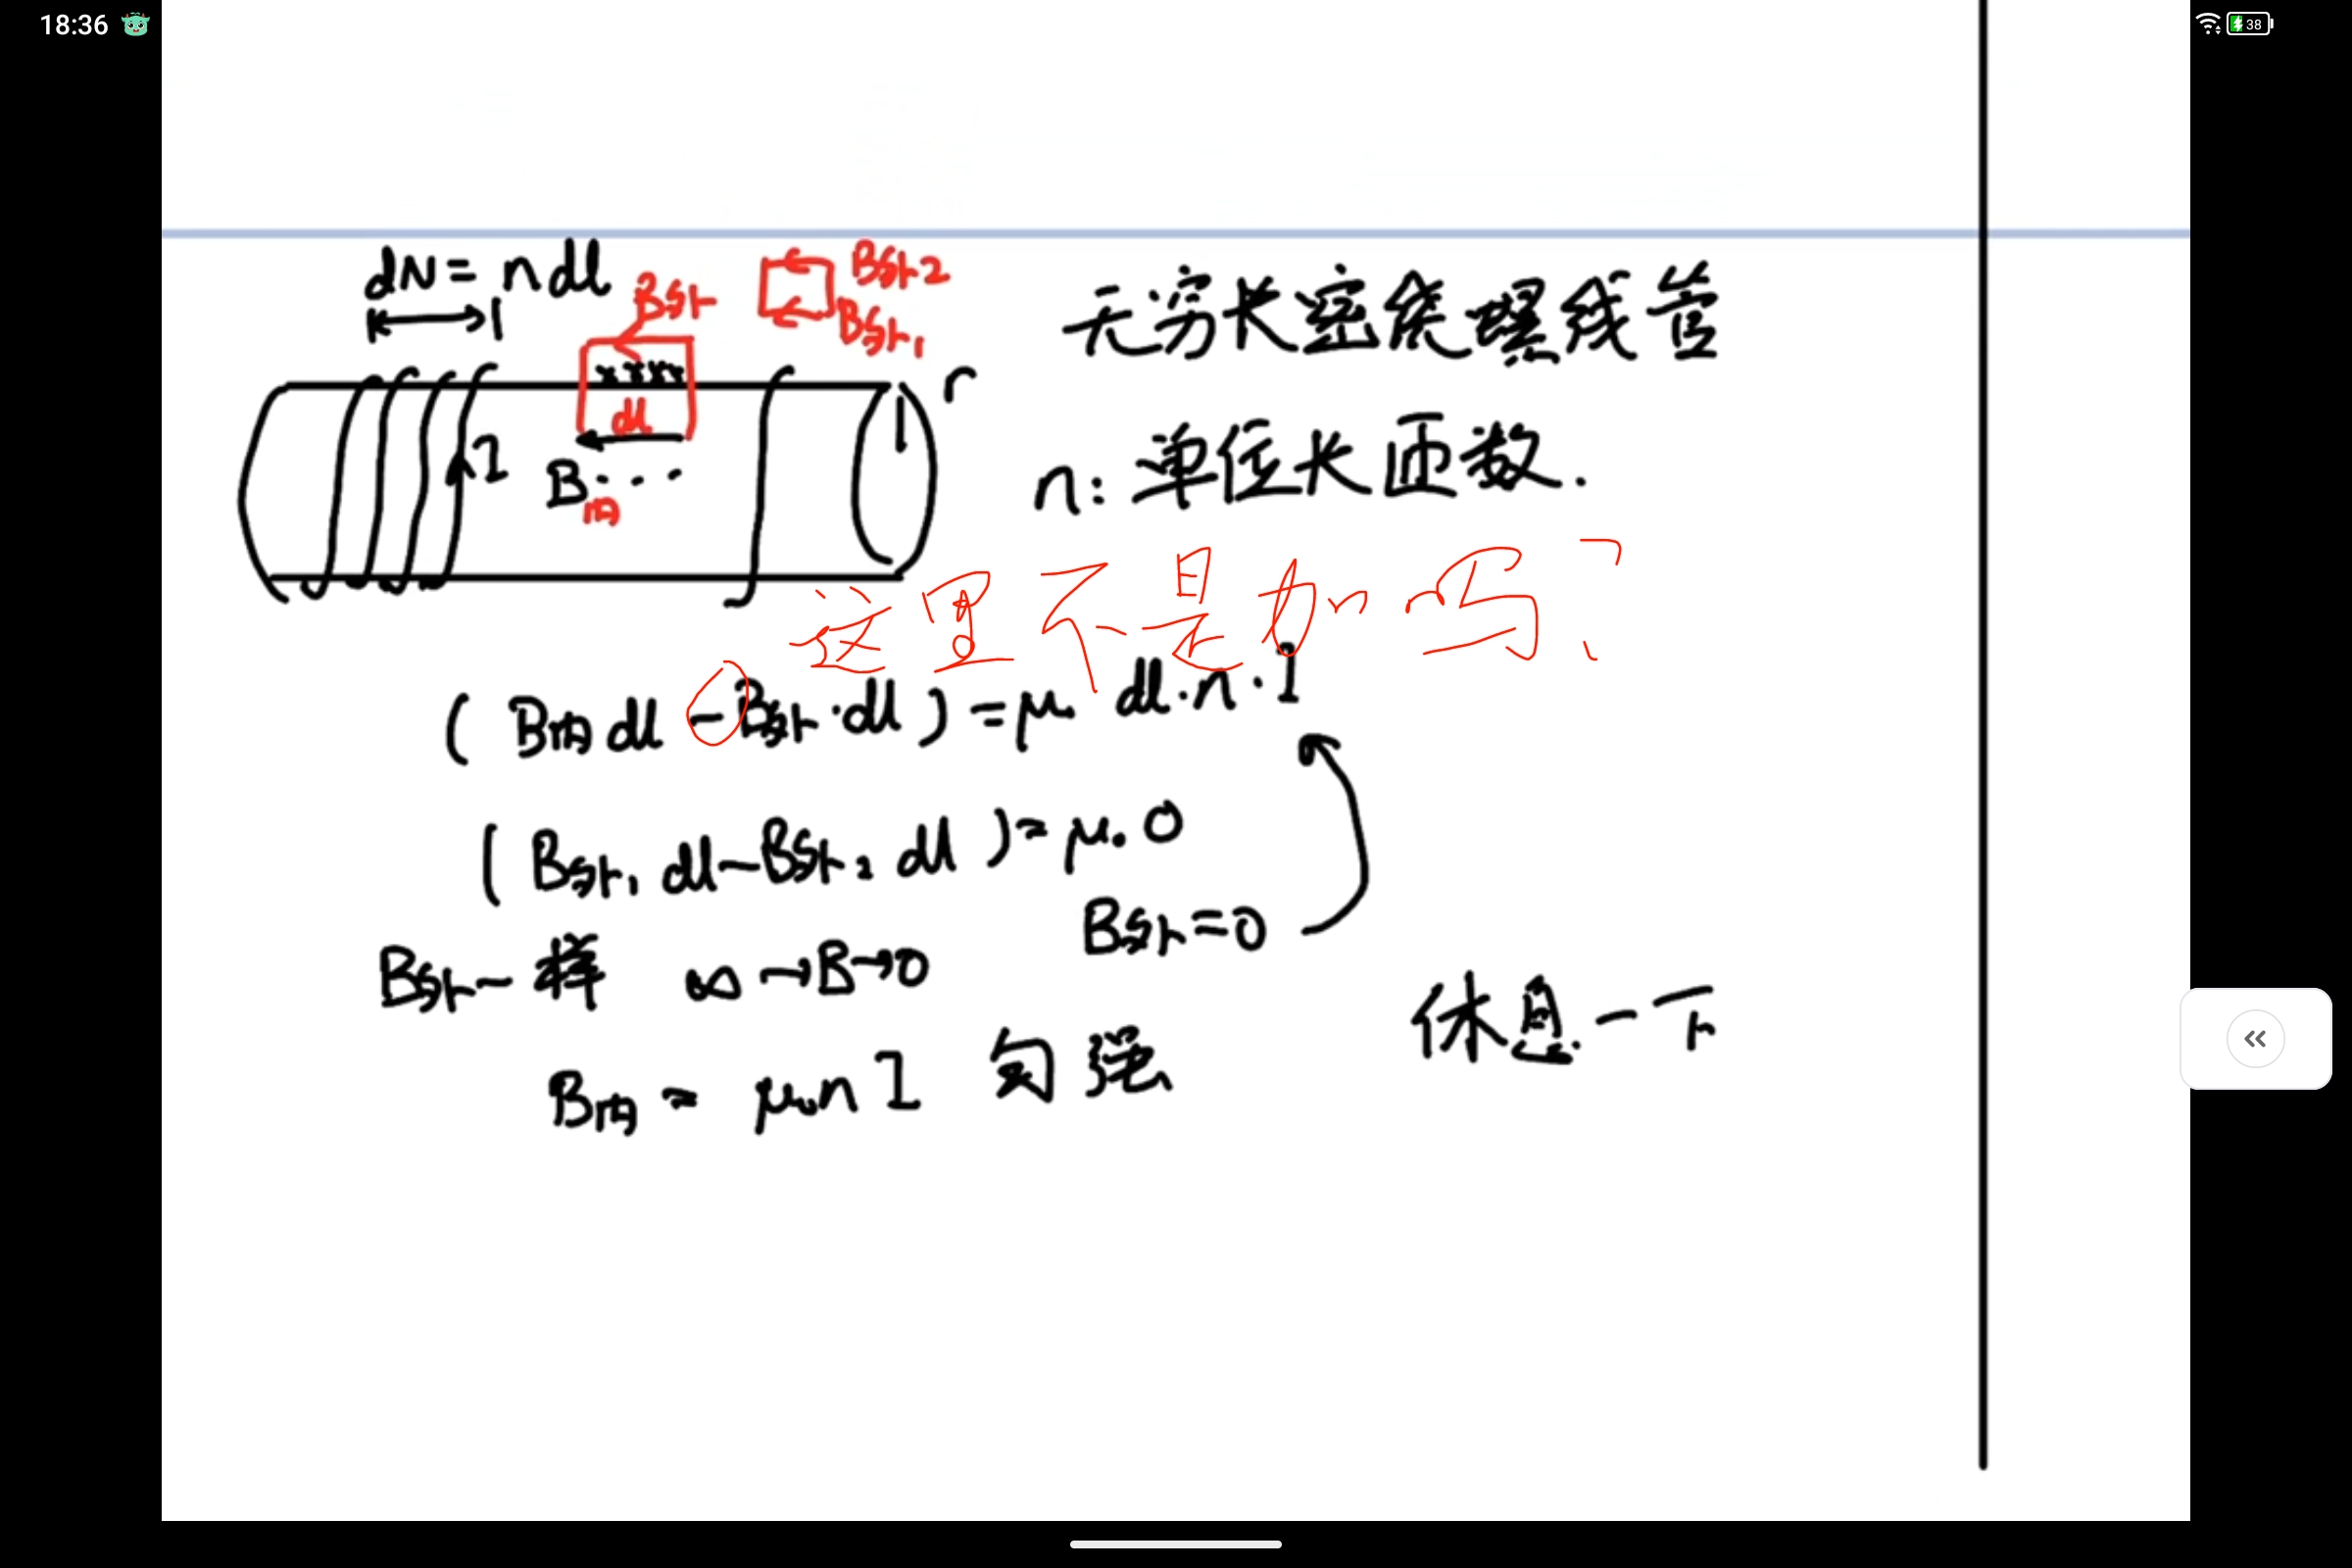 18:36
38
dN = ndl
B外
B外2
B外1
无穷长密绕螺线管
r
xxxx
dl
I
B内
n: 单位长匝数.
这里不是加吗?
( B内 dl - B外·dl ) = μ0 dl·n·I
( B外1 dl - B外2 dl ) = μ0 0
B外=0
B外一样 ∞ → B→0
休息一下
B内 = μ0 n I 匀强